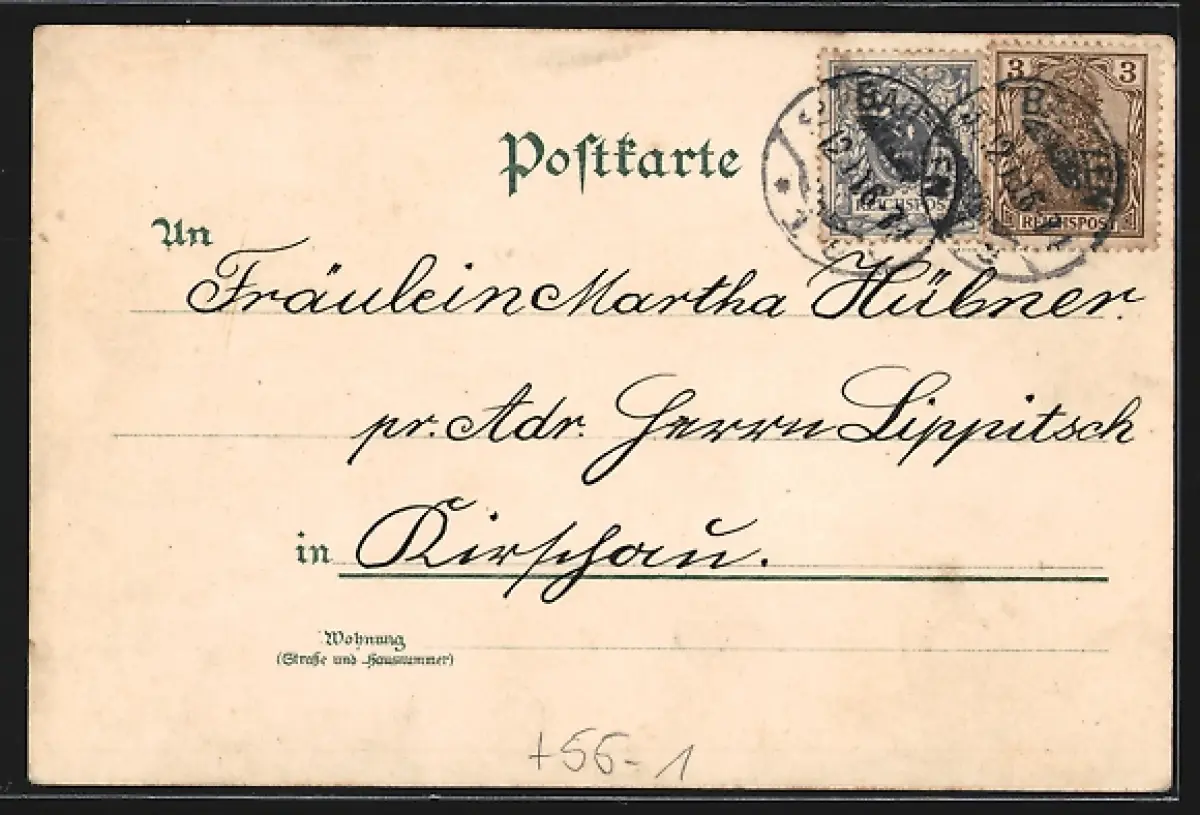 3 3
REICHSPOST
REICHSPOST
Postkarte
An
Fräulein Martha Hübner.
pr. Adr. Herrn Lippitsch
in Kirschau.
Wohnung
(Straße und Hausnummer)
+56-1